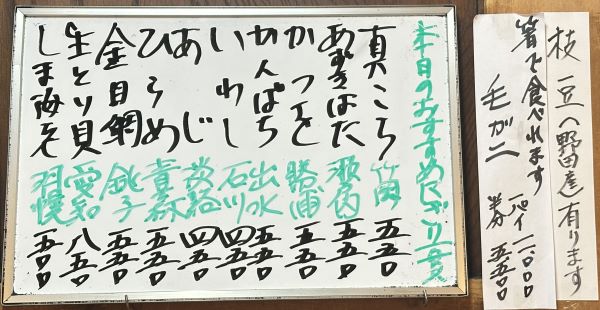 枝豆(野田産)有ります
箸で食べれます
毛ガニ
一パイ 一一〇〇〇
半分 五五〇〇
本日のおすすめにぎり一貫
真こち 五五〇
あずきはた 瀬戸内 五五〇
かつを 勝浦 五五〇
かんぱち 出水 五五〇
いわし 石川 四五〇
あじ 淡路 四五〇
ひらめ 青森 五五〇
金目鯛 銚子 五五〇
生とり貝 愛知 八五〇
しま海老 羽幌 五〇〇